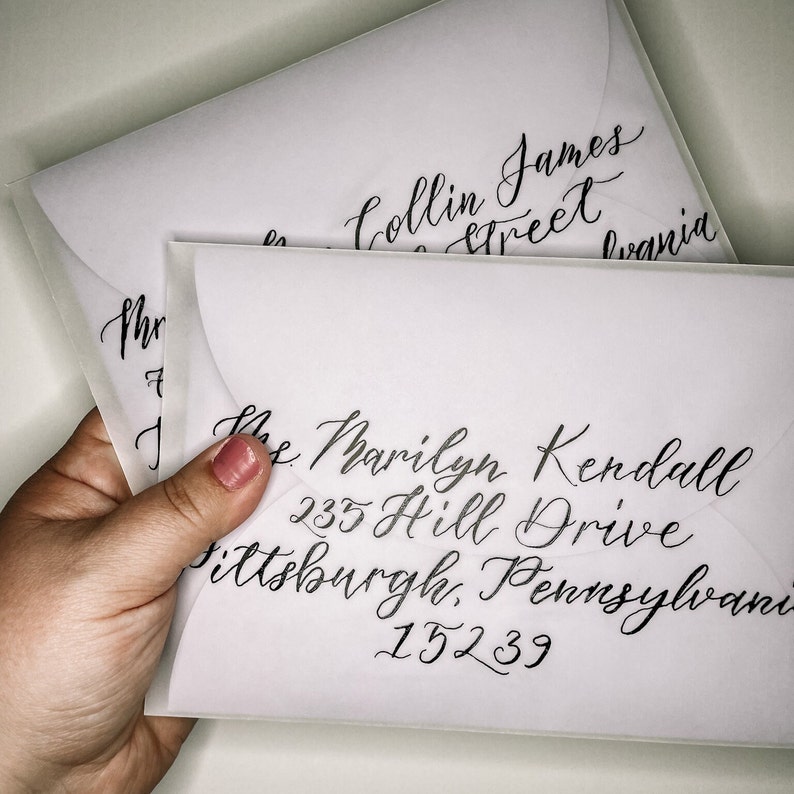 Collin James
Street
Ms. Marilyn Kendall
235 Hill Drive
Pittsburgh, Pennsylvani
15239